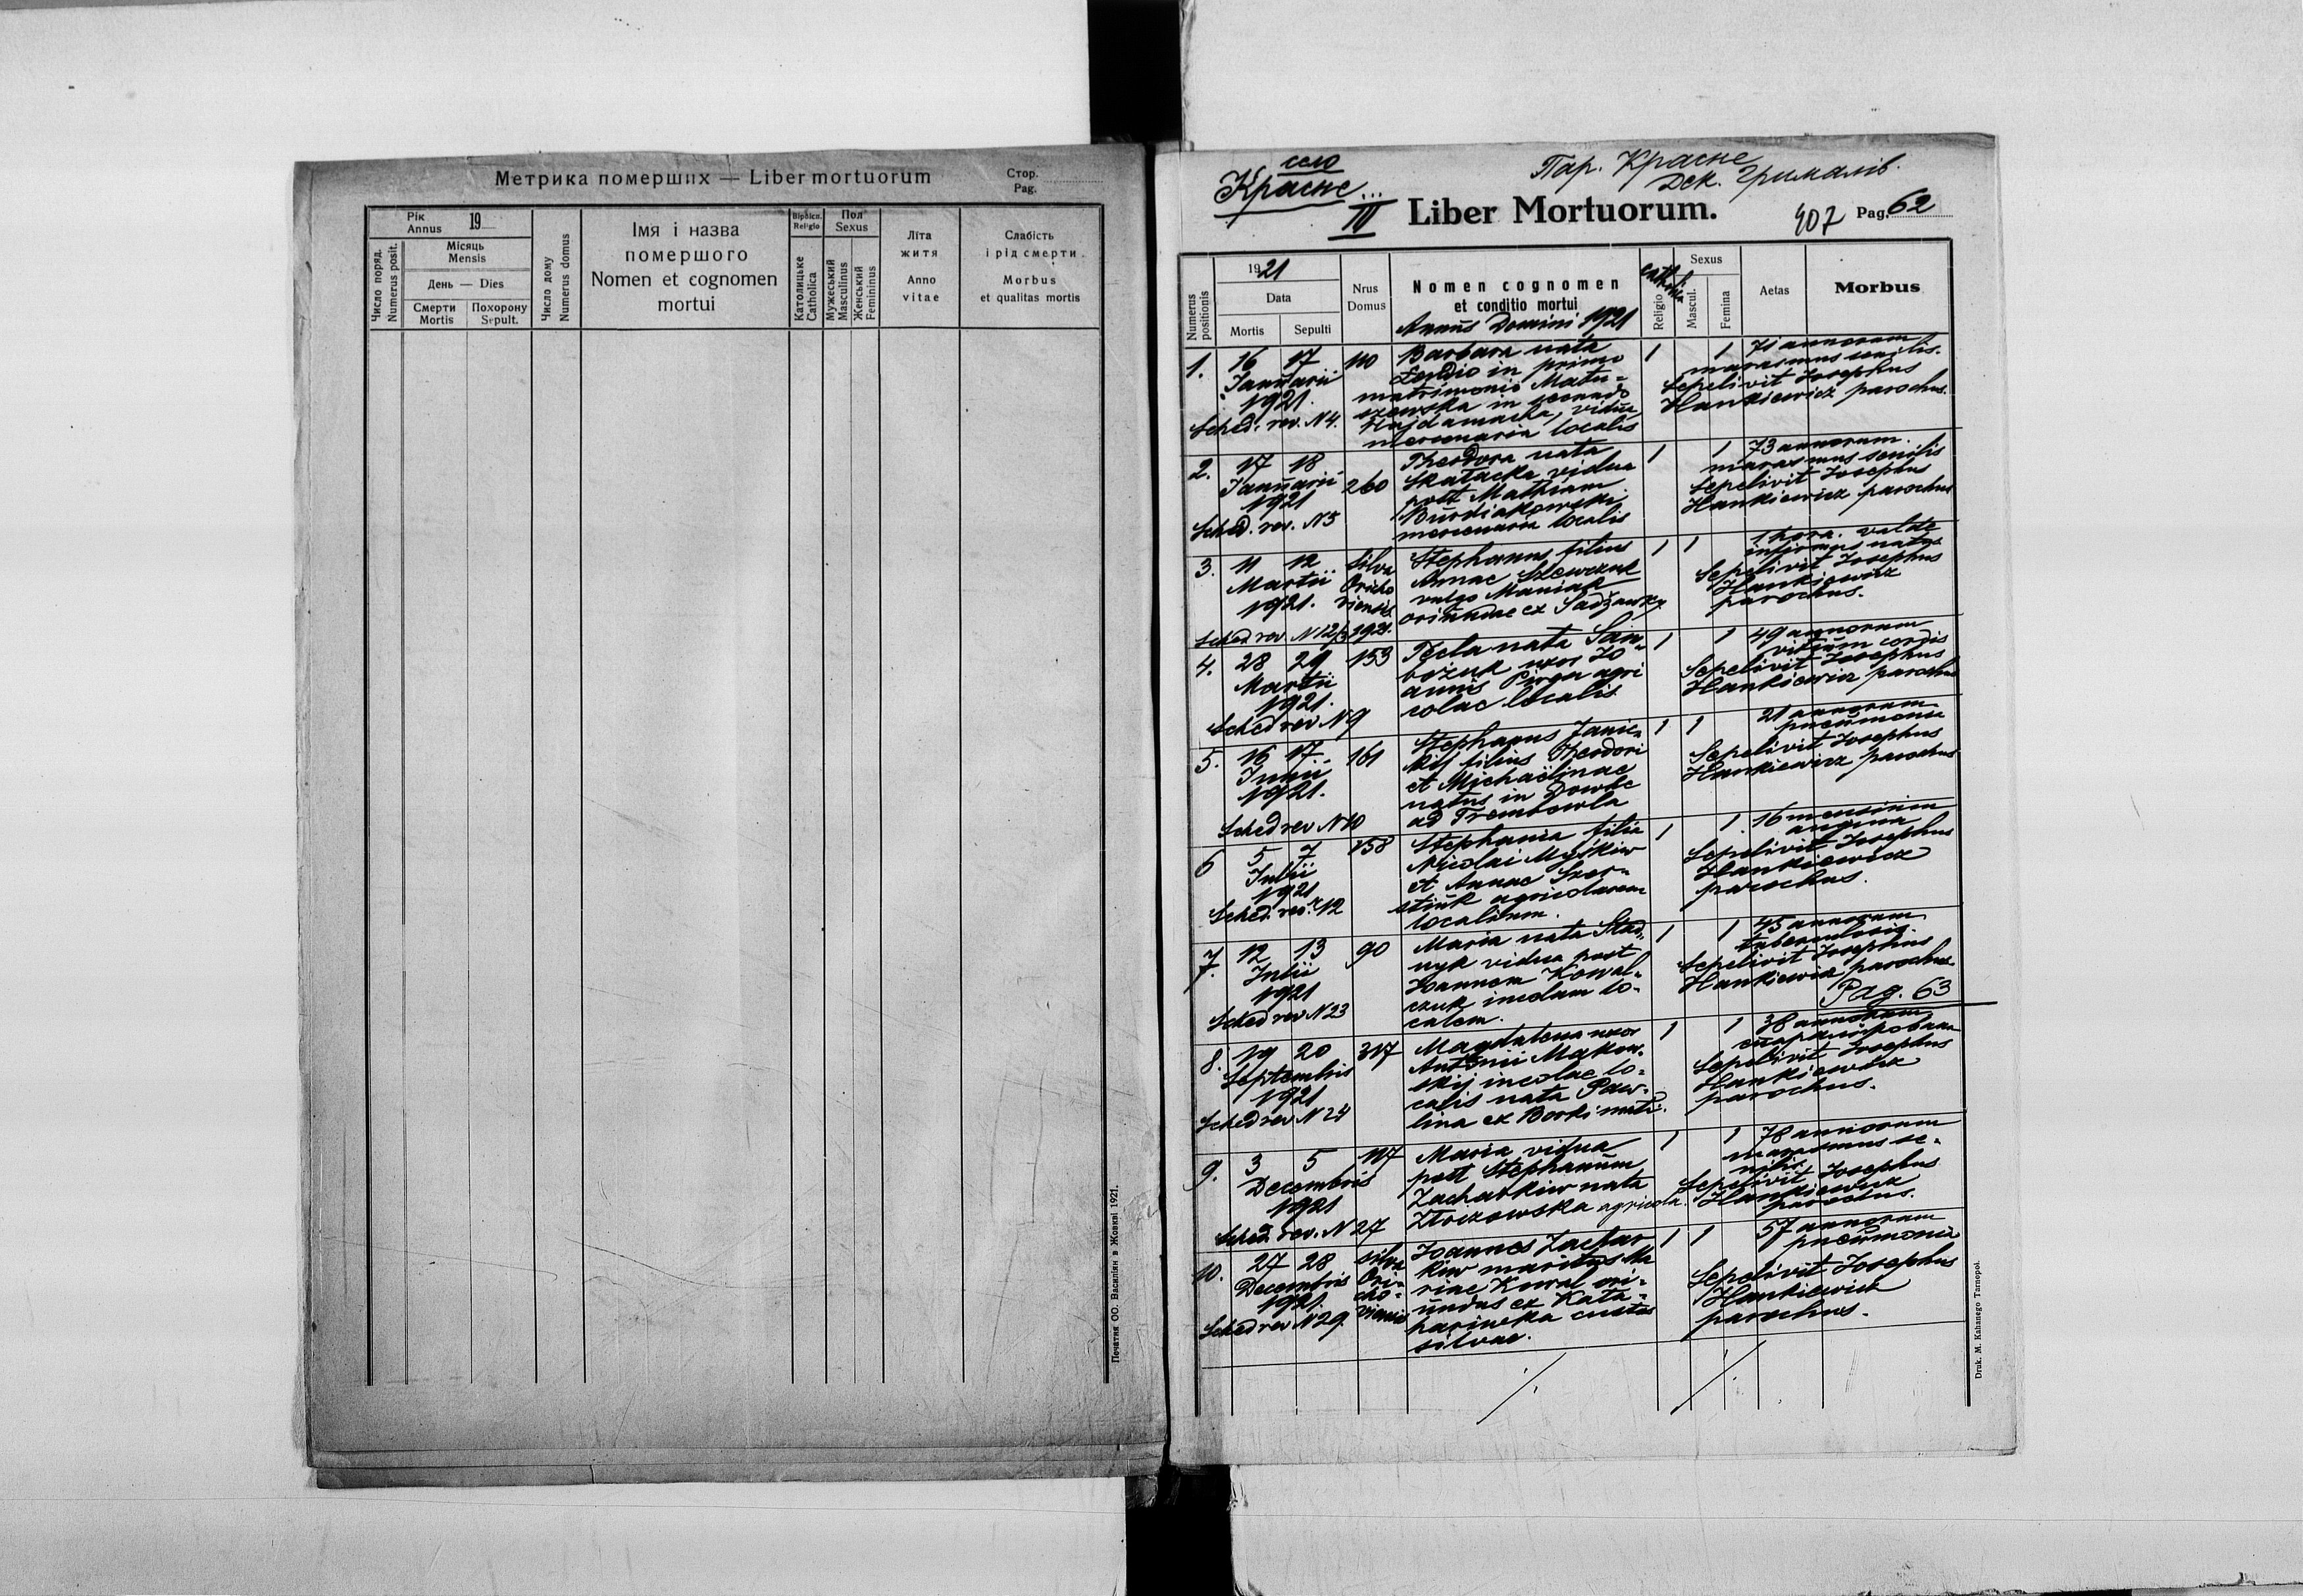 Метрика померших — Liber mortuorum
Стор.
Pag.
Рік
Annus
19
Число поряд.
Numerus posit.
Місяць
Mensis
День — Dies
Смерти
Mortis
Похорону
Sepult.
Число дому
Numerus domus
Імя і назва
помершого
Nomen et cognomen
mortui
Віроісп.
Religio
Католицьке
Catholica
Пол
Sexus
Мужеський
Masculinus
Женський
Femininus
Літа
житя
Anno
vitae
Слабість
і рід смерти
Morbus
et qualitas mortis
Печатня ОО. Василіян в Жовкві 1921.
село
Красне
IV
Пар. Красне
Дек. Грималів.
Liber Mortuorum.
407
Pag. 62
Numerus
positionis
1921
Data
Mortis
Sepulti
Nrus
Domus
Nomen cognomen
et conditio mortui
Annus Domini 1921
Religio
Sexus
Mascul.
Femina
Aetas
Morbus
1. 16 17 110 Barbara nata 1 1 71 annorum
Januarii in primo marasmus senilis.
1921. matrimonio Matu= Sepelivit Josephus
szewska in secundo Hankiewicz parochus.
Sched. rev. N 4. Hajdamacha, vidua
mercenaria localis
2. 17 18 260 Theodora nata 1 1 73 annorum.
Januarii Skatacka vidua marasmus senilis
1921 post Mathiam Sepelivit Josephus
Burdiakowski Hankiewicz parochus
Sched. rev. N 5 mercenaria localis
3. 11 12 silva Stephanus filius 1 1 1 hora. valde
Martii Oricho Annae Szewczuk infirmus natus
1921. viensis vulgo Maniak Sepelivit Josephus
oriundae ex Sadzawky Hankiewicz
parochus.
Sched rev. N 12/3 1921.
4. 28 29 153 Tecla nata Sam= 1 1 49 annorum
Martii bożuk uxor Jo vitium cordis
1921. annis Pirga agri Sepelivit Josephus
colae localis Hankiewicz parochus
Sched rev N 9
5. 16 17 161 Stephanus Janic= 1 1 21 annorum
Junii kij filius Theodori pneumonia
1921. et Michaëlinae Sepelivit Josephus
natus in Dowhe Hankiewicz parochus
Sched rev N 10 ad Trembowla
6 5 7 158 Stephania filia 1 1 16 mensium
Julii Nicolai Myśkiw angina
1921 et Annae Szer= Sepelivit Josephus
Sched. rev. N 12 stiuk agricolarum Hankiewicz
localium. parochus.
7. 12 13 90 Maria nata Stad= 1 1 45 annorum
Julii nyk vidua post tuberculosis.
1921 Joannem Kowal= Sepelivit Josephus
czuk incolam lo= Hankiewicz parochus
Sched rev N 23 calem.
Pag. 63
8. 19 20 317 Magdalena uxor 1 1 38 annorum
Septembris Antonii Makow=
1921 skij incolae lo= Sepelivit Josephus
calis nata Paw= Hankiewicz
Sched rev N 24 lina ex Borki mali. parochus.
9. 3 5 117 Maria vidua 1 1 78 annorum
Decembris post Stephanum marasmus se=
1921 Zacharkiw nata nilis
agricola. Sepelivit Josephus
Sched. rev. N 27 Hankiewicz
parochus.
10. 27 28 silva Joannes Zachar 1 1 57 annorum
Decembris Ori= kiw maritus Ma pneumonia
1921. cho= riae Kowal ori= Sepelivit Josephus
Sched rev N 29. viensis undus ex Kata= Hankiewicz
hariwka custos parochus.
silvae.
Druk. M. Kahanego Tarnopol.